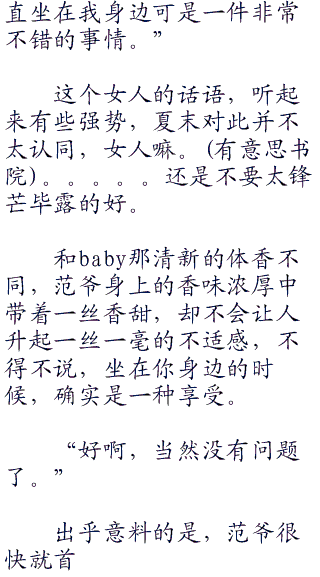 直坐在我身边可是一件非常
不错的事情。”
这个女人的话语，听起
来有些强势，夏末对此并不
太认同，女人嘛。(有意思书
院)。。。。。还是不要太锋
芒毕露的好。
和baby那清新的体香不
同，范爷身上的香味浓厚中
带着一丝香甜，却不会让人
升起一丝一毫的不适感，不
得不说，坐在你身边的时
候，确实是一种享受。
“好啊，当然没有问题
了。”
出乎意料的是，范爷很
快就首